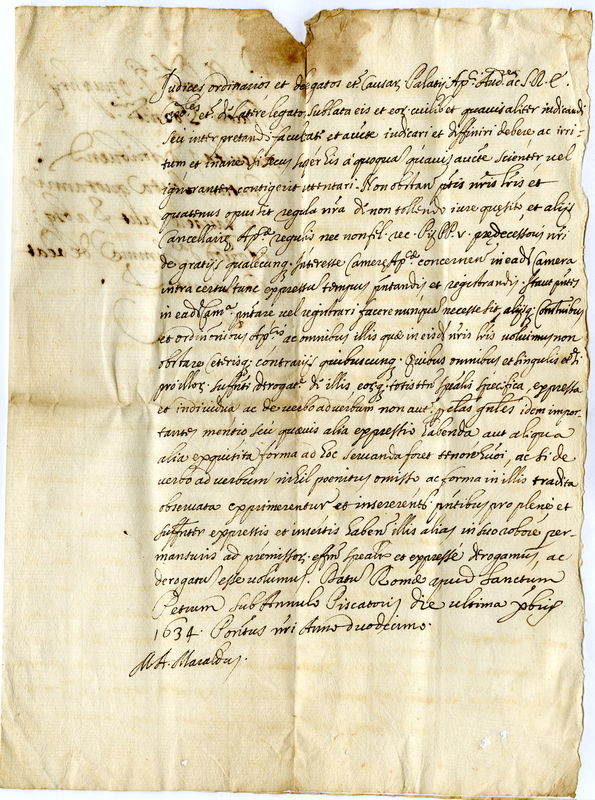 Judices ordinarios et delegatos et Causar Palatij Ap. Aud.res ac S.R.E.
et de latere legatos, sublata eis et eor cuilibet quavis aliter judicandi
seu interpretandi facultate et aucte judicari et diffiniri debere ac irri-
tum et inane si secus super his à quoqua quavis aucte scienter vel
ignoranter contigerit attentari. Non obstan ptis nris lris et
quatenus opus sit regula nra de non tollendo iure quesito, et alijs
Cancellariæ Ap.cæ regulis nec non fel. rec. Pij PP. v. prædecessoris nri
de gratijs qualecunq Interesse Cameræ Ap.cæ concernen in ead Camera
intra certu tunc expressu tempus pntandis et registrandis. Itaut pntes
in ead Cam.a pntare vel registrari facere nunqua necesse sit, alijsq Constnibus
et ordinnibus Ap.cis ac omnibus illis quæ in eisd nris lris voluimus non
obstare ceterisq contrarijs quibuscunq. Quibus omnibus et singulis et si
pro illor suffnti derogat.e de illis eorq totis ttn spalis specifica, expressa
et individua ac de verbo ad verbum non aut p clas gnles idem impor-
tantes mentio seu quævis alia expressio habenda aut aliqua
alia exquisita forma ad hoc servanda foret ac si de
verbo ad verbum nihil poenitus omisso ac forma in illis tradita
observata exprimerentur et insererent pntibus pro plene et
suffnter expressis et insertis haben illis alias in suo robore per-
mansuris ad præmissor effm spealr et expressè derogamus, ac
derogatu esse volumus. Datu Romæ apud Sanctum
Petrum sub Annulo Piscatoris die ultima Xbris
1634. Pontus nri Anno duodecimo.
M.A. Maraldus.